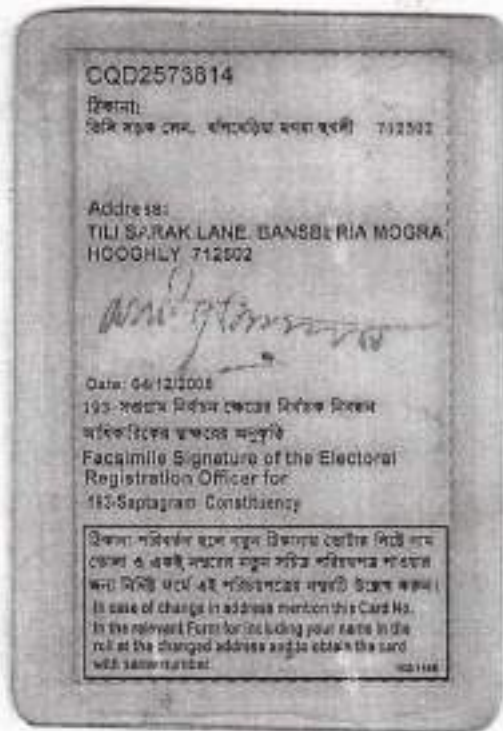 CQD2573814
ঠিকানা:
তিলি সড়ক লেন, বাঁশবেড়িয়া মগরা হুগলী 712502
Address:
TILI SARAK LANE, BANSBERIA MOGRA
HOOGHLY 712502
Date: 04/12/2008
193-সপ্তগ্রাম নির্বাচন ক্ষেত্রের নির্বাচক নিবন্ধন
আধিকারিকের স্বাক্ষরের অনুকৃতি
Facsimile Signature of the Electoral
Registration Officer for
193-Saptagram Constituency
ঠিকানা পরিবর্তন হলে নতুন ঠিকানায় ভোটার লিষ্টে নাম
তোলা ও একই নম্বরের নতুন সচিত্র পরিচয়পত্র পাওয়ার
জন্য নির্দিষ্ট ফর্মে এই পরিচয়পত্রের নম্বরটি উল্লেখ করুন।
In case of change in address mention this Card No.
in the relevant Form for including your name in the
roll at the changed address and to obtain the card
with same number.